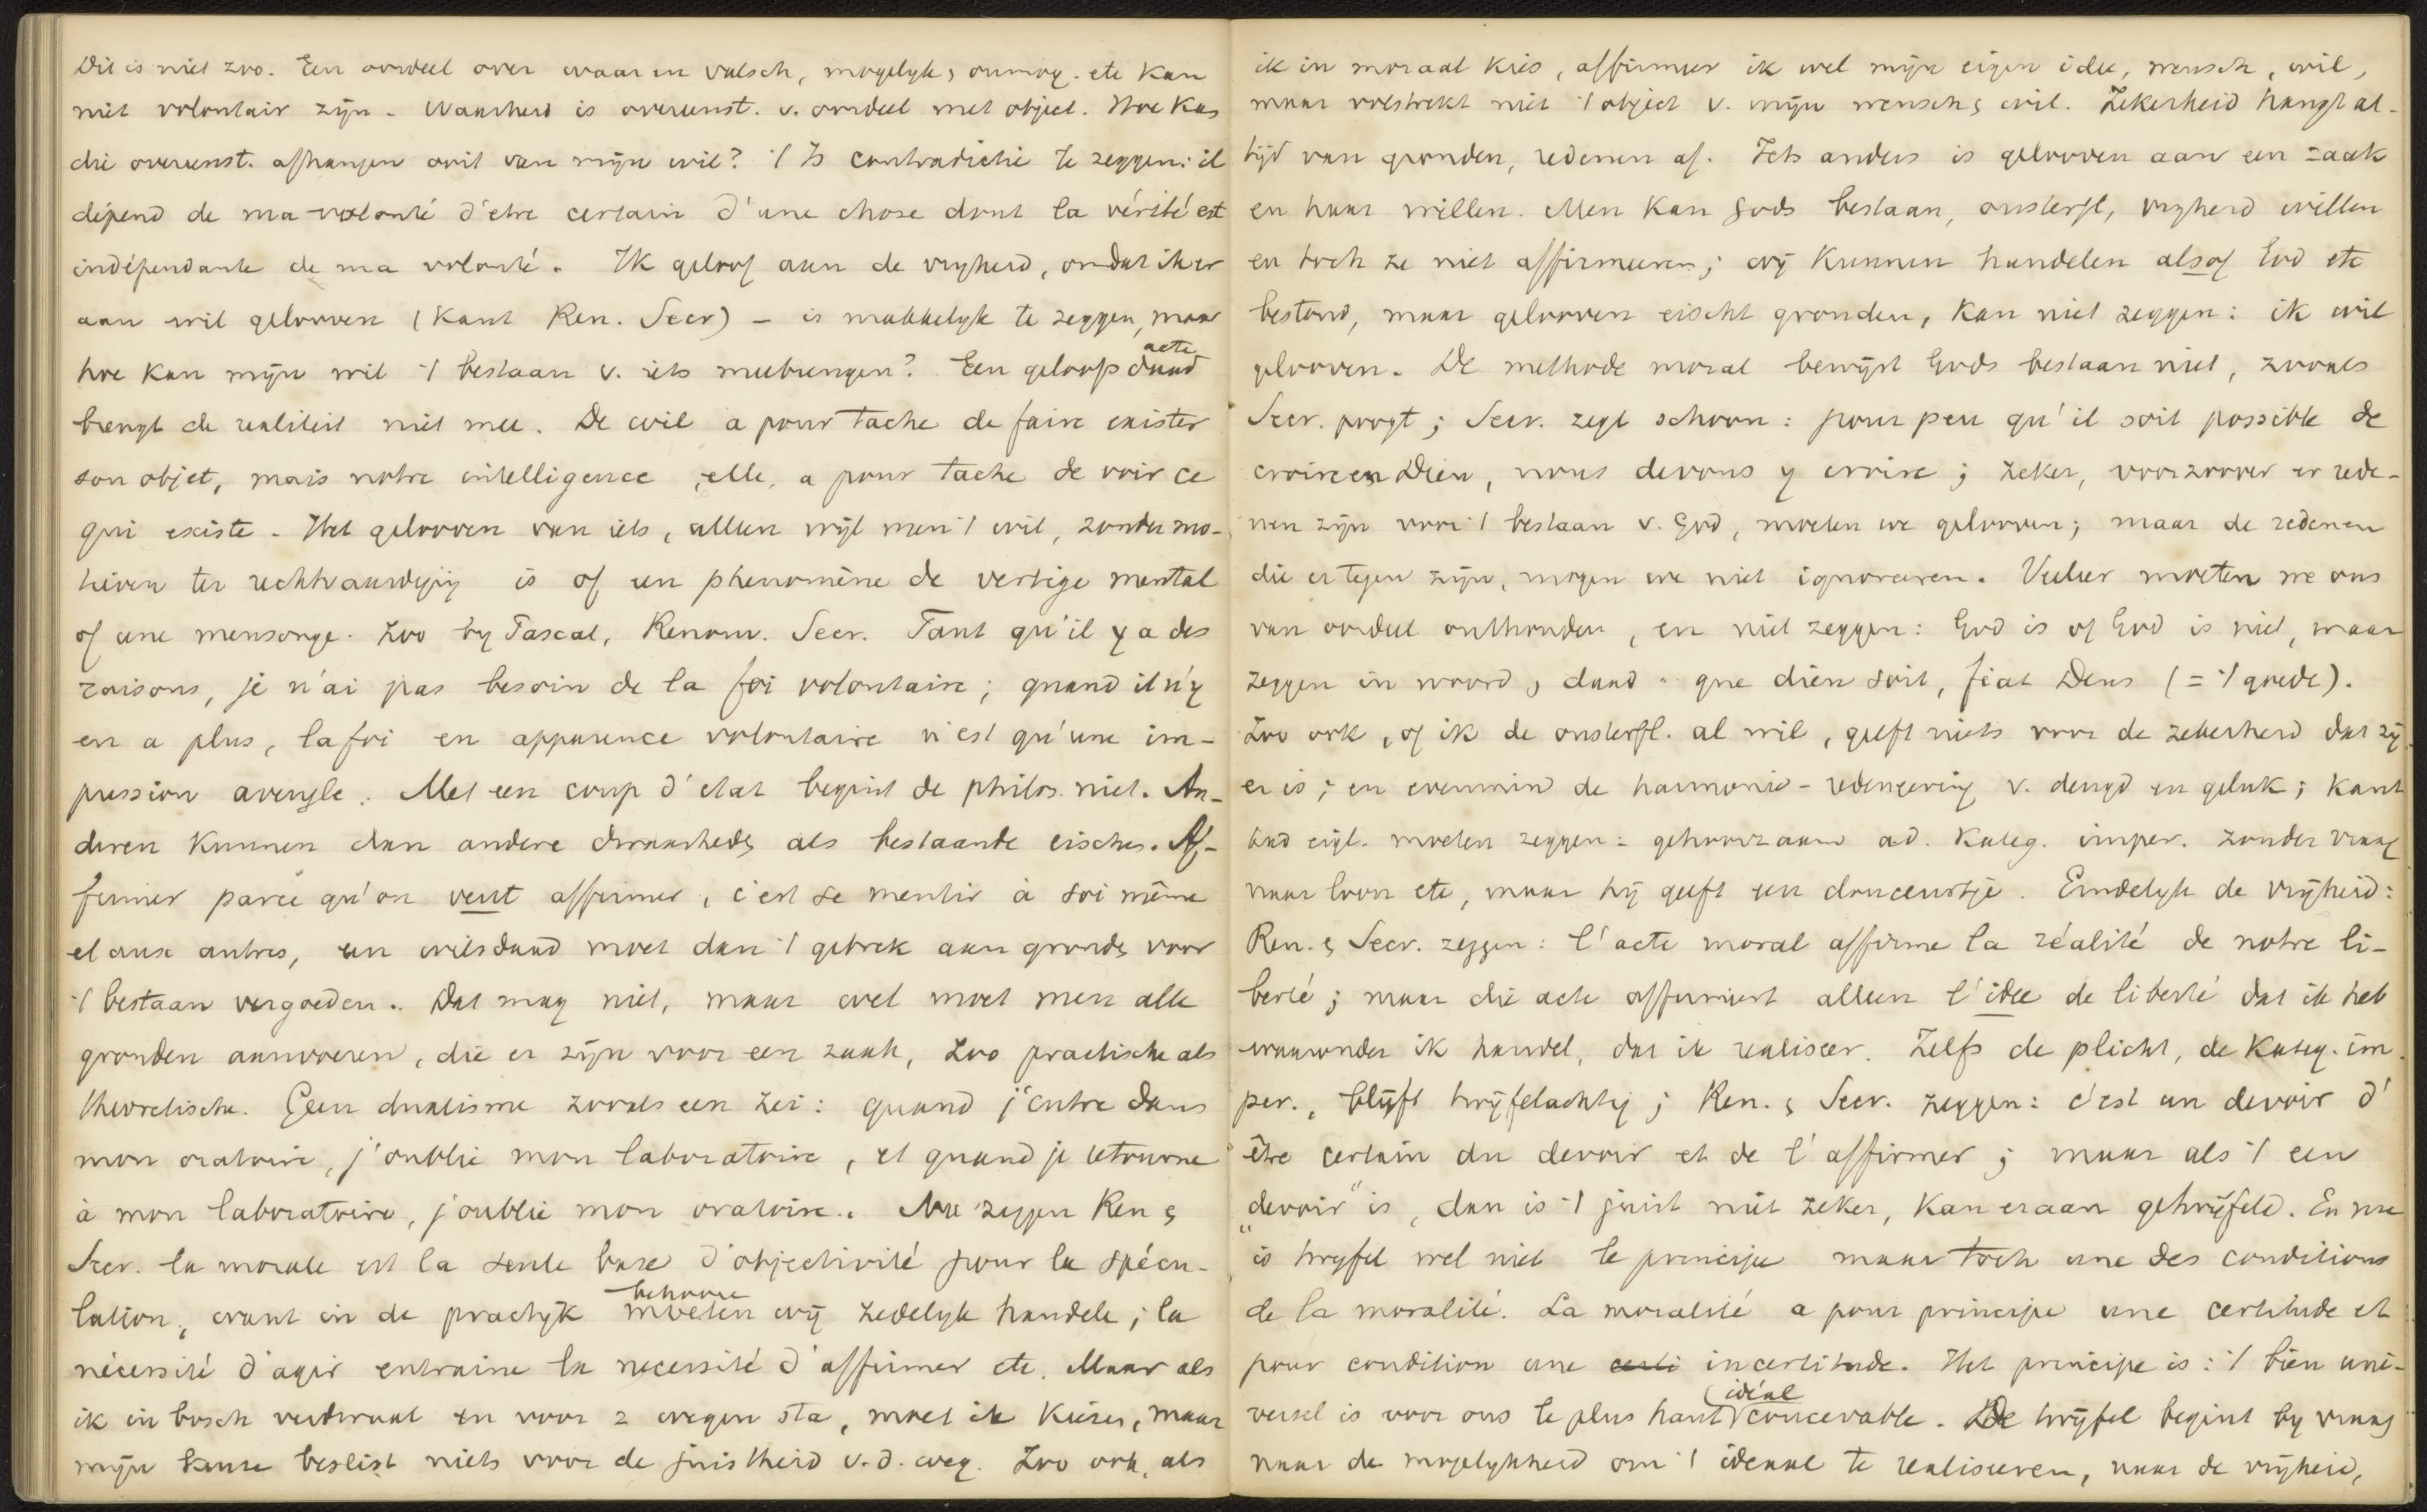 Dit is niet zoo. Een oordeel over waar en valsch, mogelyk, onmog. etc kan
niet volontair zijn. Waarheid is overeenst. v. oordeel met object. Hoe kan
die overeenst. afhangen ooit van mijn wil? 't Is contradictie te zeggen: il
dépend de ma volonté d'etre certain d'une chose dont la vérité est
indépendante de ma volonté. Ik geloof aan de vryheid, omdat ik er
aan wil gelooven (Kant Ren. Secr) – is makkelyk te zeggen, maar
hoe kan mijn wil 't bestaan v. iets meebrengen? Een geloofs daad acte
brengt de realiteit niet mee. De wil a pour tache de faire exister
son objet, mais notre intelligence, elle, a pour tache de voir ce
qui existe. Het gelooven van iets, alleen wijl men 't wil, zonder mo-
tieven ter rechtvaardiging is of un phenomène de vertige mental
of une mensonge. Zoo by Pascal, Renouv. Secr. Tant qu'il y a des
raisons, je n'ai pas besoin de la foi volontaire; quand il n'y
en a plus, la foi en apparence volontaire n'est qu'une im-
pression aveugle. Met een coup d'etat begint de philos. niet. An-
deren kunnen dan andere dwaashedn als bestaande eischen. Af-
firmer parce qu'on veut affirmer, c'est se mentir à soi même
et aux autres, een wilsdaad moet dan 't gebrek aan gronds voor
't bestaan vergoeden. Dat mag niet, maar wel moet men alle
gronden aanvoeren, die er zijn voor een zaak, zoo practische als
theoretische. Geen dualisme zooals een zei: quand j'entre dans
mon oratoire, j'oublie mon laboratoire, et quand je retourne
à mon laboratoire, j'oublie mon oratoire. Nu zeggen Ren &
Secr. la morale est la seule base d'objectivité pour la spécu-
lation, want in de practijk moeten behoore wij zedelyk handele; la
nécessité d'agir entraine la necessité d'affirmer etc. Maar als
ik in bosch verdwaal en voor 2 wegen sta, moet ik kiezen, maar
mijn keuze beslist niets voor de juistheid v.d. weg. Zoo ook, als
ik in moraal kies, affirmeer ik wel mijn eigen idee, wensch, wil,
maar volstrekt niet 't object v. mijn wensch & wil. Zekerheid hangt al-
tijd van gronden, redenen af. Iets anders is gelooven aan een zaak
en haar willen. Men kan Gods bestaan, onsterfl, vryheid willen
en toch ze niet affirmeeren; wij kunnen handelen alsof God etc
bestond, maar gelooven eischt gronden, kan niet zeggen: ik wil
gelooven. De methode moral bewijst Gods bestaan niet, zooals
Secr. poogt; Secr. zegt schoon: pour peu qu'il soit possible de
croire en Dieu, nous devons y croire; zeker, voorzoover er rede-
nen zijn voor 't bestaan v. God, moeten we gelooven; maar de redenen
die er tegen zijn, mogen we niet ignoreeren. Veeleer moeten we ons
van oordeel onthouden, en niet zeggen: God is of God is niet, maar
zeggen in woord, daad: que dieu soit, fiat Deus (= 't goede).
Zoo ook, of ik de onsterfl. al wil, geeft niets voor de zekerheid dat zij
er is; en evenmin de harmonie-redeneering v. deugd en geluk; Kant
had eigl. moeten zeggen: gehoorzaam a.d. Kateg. imper. zonder vraag
naar loon etc, maar hij geeft een douceurtje. Eindelyk de vrijheid:
Ren. & Secr. zeggen: l'acte moral affirme la réalité de notre li-
berté; maar die acte affirmeert alleen l'idee de liberté dat ik heb
waaronder ik handel, dat ik realiseer. Zelfs de plicht, de Kateg. im
per., blijft twijfelachtig; Ren. & Secr. zeggen: c'est un devoir d'
être certain du devoir et de l'affirmer; maar als 't een
„devoir" is, dan is 't juist niet zeker, kan eraan getwijfeld. En nu
is twyfel wel niet le principe maar toch une des conditions
de la moralité. La moralité a pour principe une certitude et
pour condition une certi incertitude. Het principe is: 't bien uni-
versel is voor ons le plus haut idéal concevable. De twijfel begint by vraag
naar de mogelykheid om 't ideaal te realiseeren, naar de vrijheid,